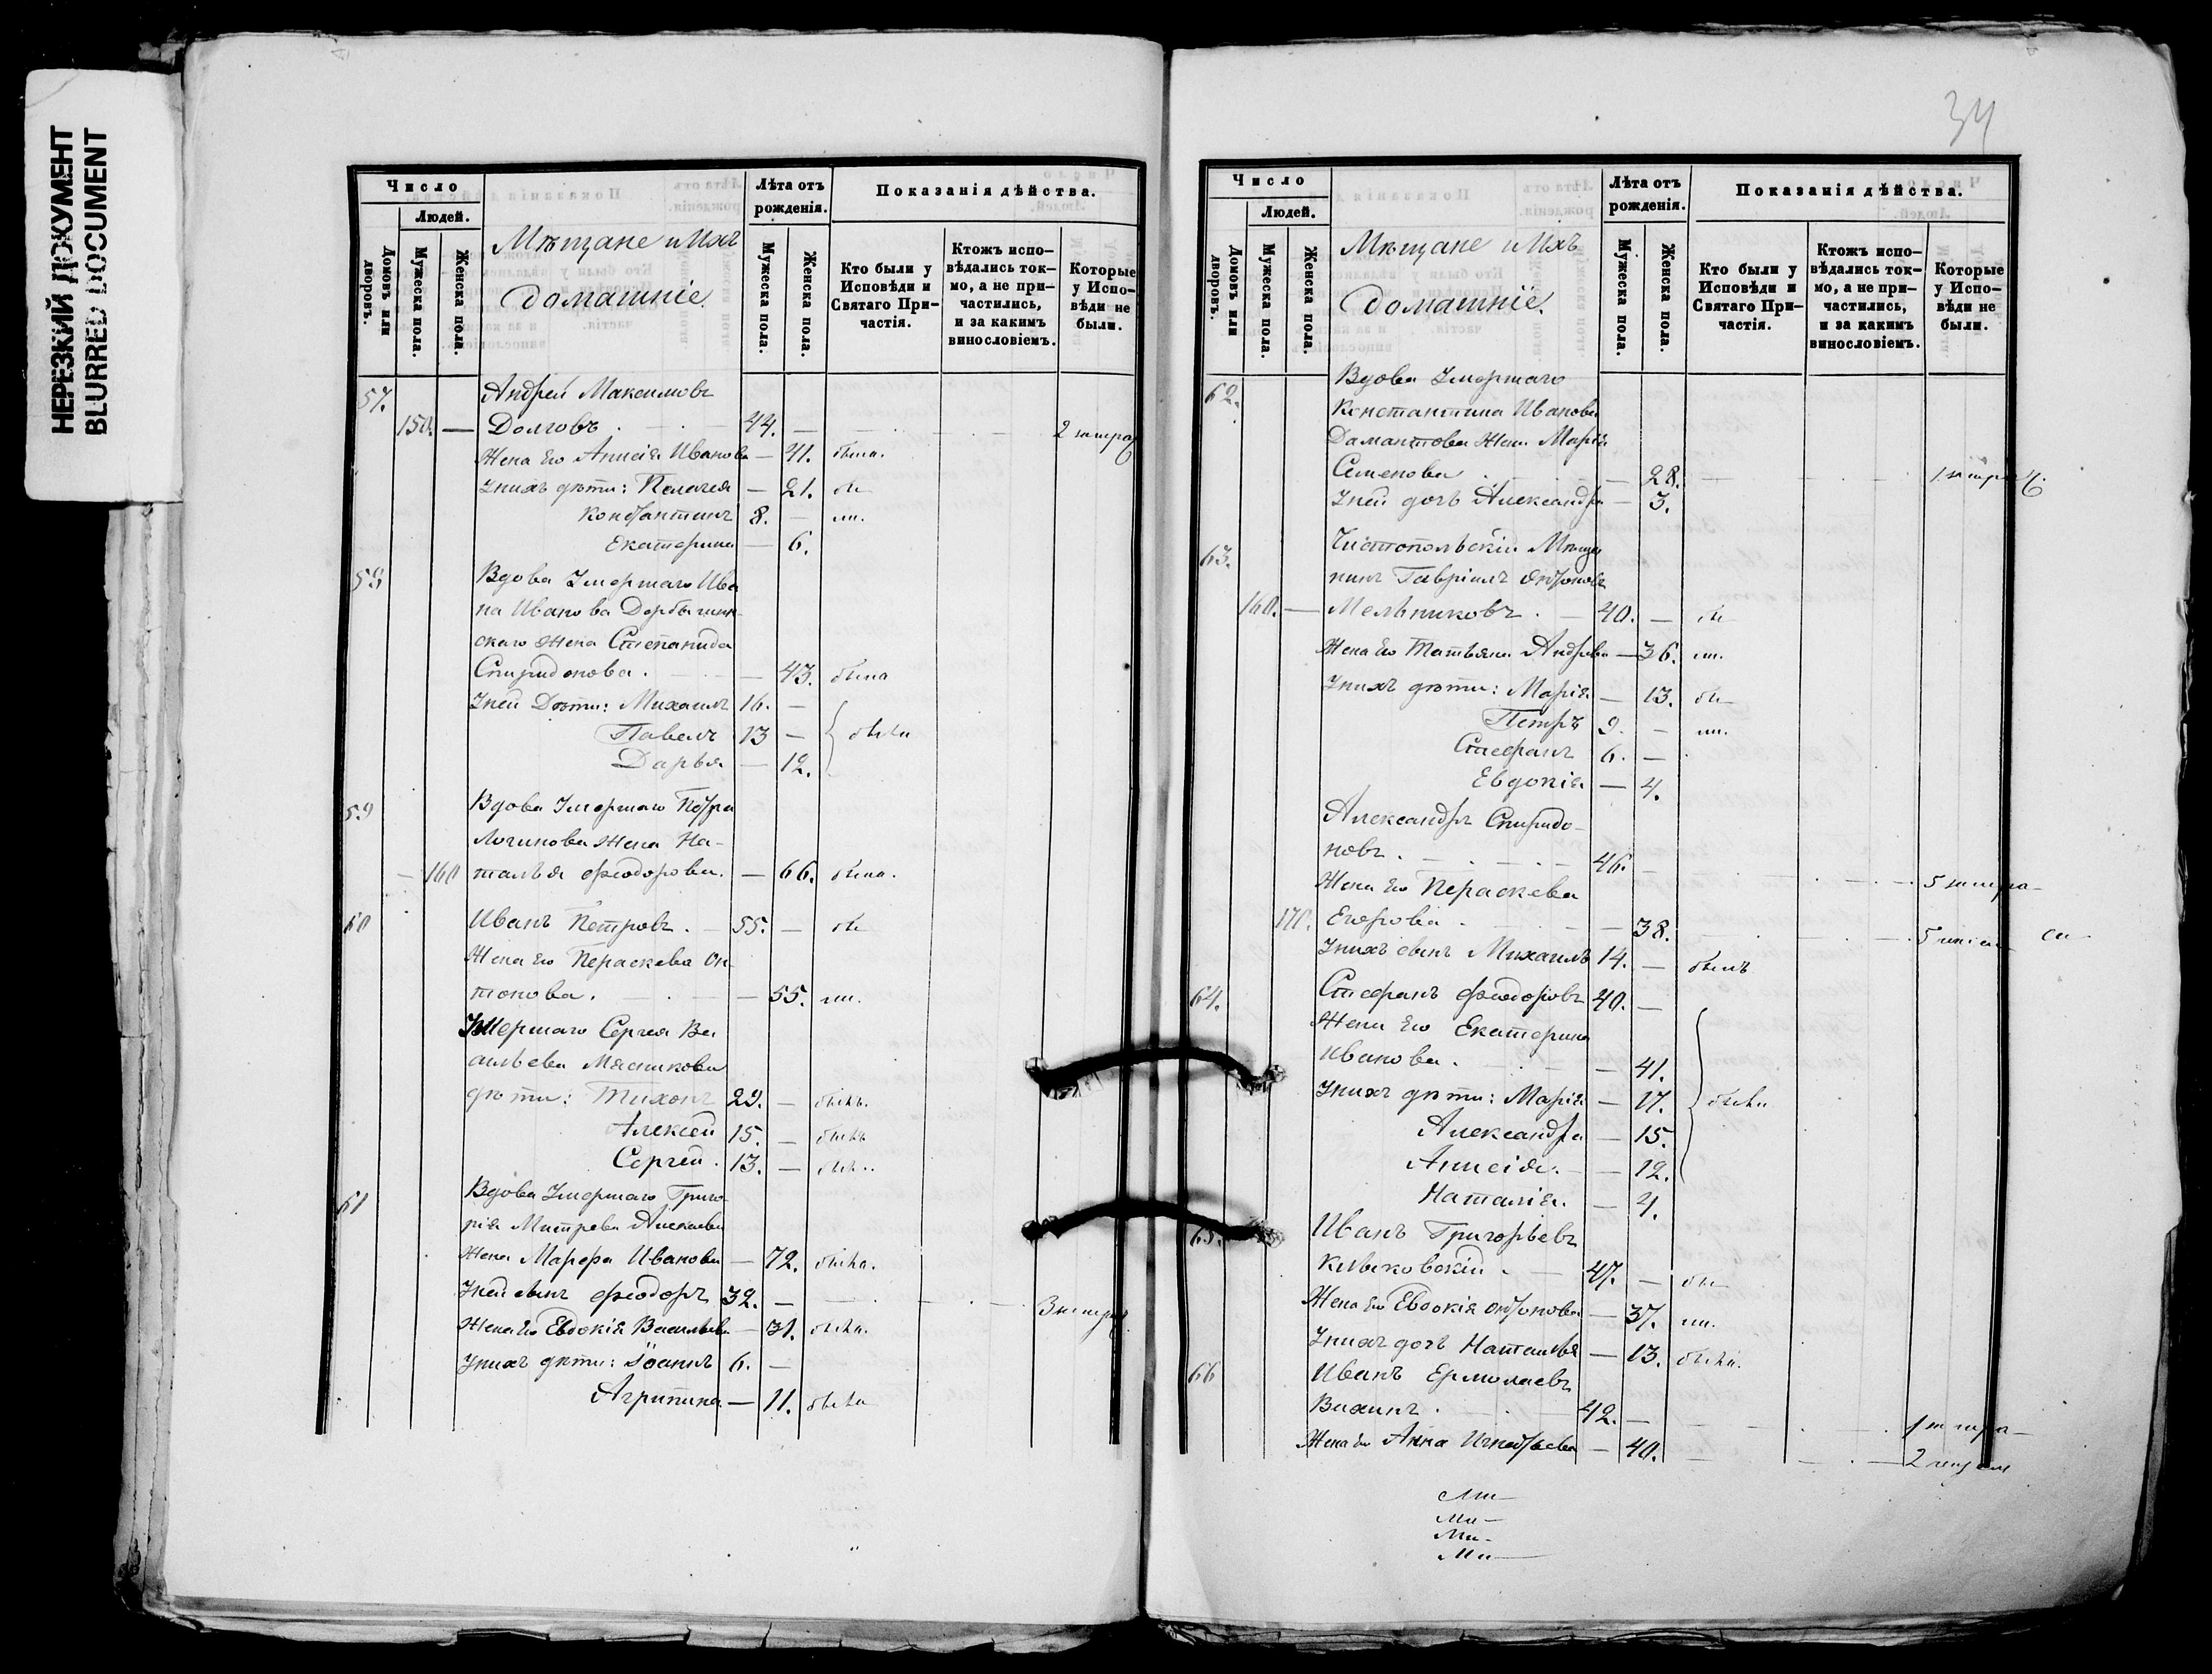 НЕРЕЗКИЙ ДОКУМЕНТ
BLURRED DOCUMENT
Число
Людей.
Домовъ или дворовъ.
Мужеска пола.
Женска пола.
Мѣщане и Ихъ
домашніе.
Лѣта отъ рожденія.
Мужеска пола.
Женска пола.
Показанія дѣйства.
Кто были у Исповѣди и Святаго Причастія.
Ктожъ исповѣдались токмо, а не причастились, и за какимъ винословіемъ.
Которые у Исповѣди не были.
57. Андрей Максимовъ
150. — Долговъ 44. — 2
Жена Его Анисія Иванова — 41. была.
У нихъ дѣти: Пелагея — 21. бы
Константинъ 8. —
Екатерина — 6.
58 Вдова Умершаго Ива
на Иванова
скаго жена Степанида
Спиридонова. — 43. была
У ней Дѣти: Михаилъ 16. —
Павелъ 13 — были
Дарья — 12.
59 Вдова Умершаго Петра
Логинова жена На-
— 160 талья Феодорова. — 66. была.
60 Иванъ Петровъ. 55. — бы
Жена Его Пераскева Ан
тонова. — 55.
Умершаго Сергея Ва
сильева Мясникова
дѣти: Тихонъ 29. — былъ.
Алексей 15. — былъ
Сергей. 13. — былъ.
61 Вдова Умершаго Григо-
рія Митрева
Жена Марфа Иванова — 72. была.
У ней сынъ Феодоръ 32. — 3
Жена Его Евдокія Васильева — 31. была.
У нихъ дѣти: Іоаннъ 6. —
Агрипина — 11. была
34
Число
Людей.
Домовъ или дворовъ.
Мужеска пола.
Женска пола.
Мѣщане и Ихъ
домашніе.
Лѣта отъ рожденія.
Мужеска пола.
Женска пола.
Показанія дѣйства.
Кто были у Исповѣди и Святаго Причастія.
Ктожъ исповѣдались токмо, а не причастились, и за какимъ винословіемъ.
Которые у Исповѣди не были.
62. Вдова Умершаго
Константина Иванова
Жена Марія
Семенова — 28. 1
У ней дочь Александра — 3.
63. Чистопольскій Мѣща
нинъ Гавріилъ Антоновъ
160. — Мельниковъ. 40. — бы
Жена Его Татьяна Андреева — 36.
У нихъ дѣти: Марія — 13. бы
Петръ 9. —
Стефанъ 6. —
Евдокія — 4.
Александръ Спиридо-
новъ. 46. — 5
Жена Его Пераскева
170. Егорова. — 38. 5
У нихъ сынъ Михаилъ 14. — былъ
64. Стефанъ Феодоровъ 40. —
Жена Его Екатерина
Иванова. — 41.
У нихъ дѣти: Марія — 17. были
Александра — 15.
Анисія. — 12.
Наталія. — 4.
65. Иванъ Григорьевъ
47. — бы
Жена Его Евдокія Антонова — 37.
У нихъ дочь Наталья — 13. была.
66 Иванъ Ермолаевъ
42. — 1
Жена Его Анна Игнатьева — 40. 2